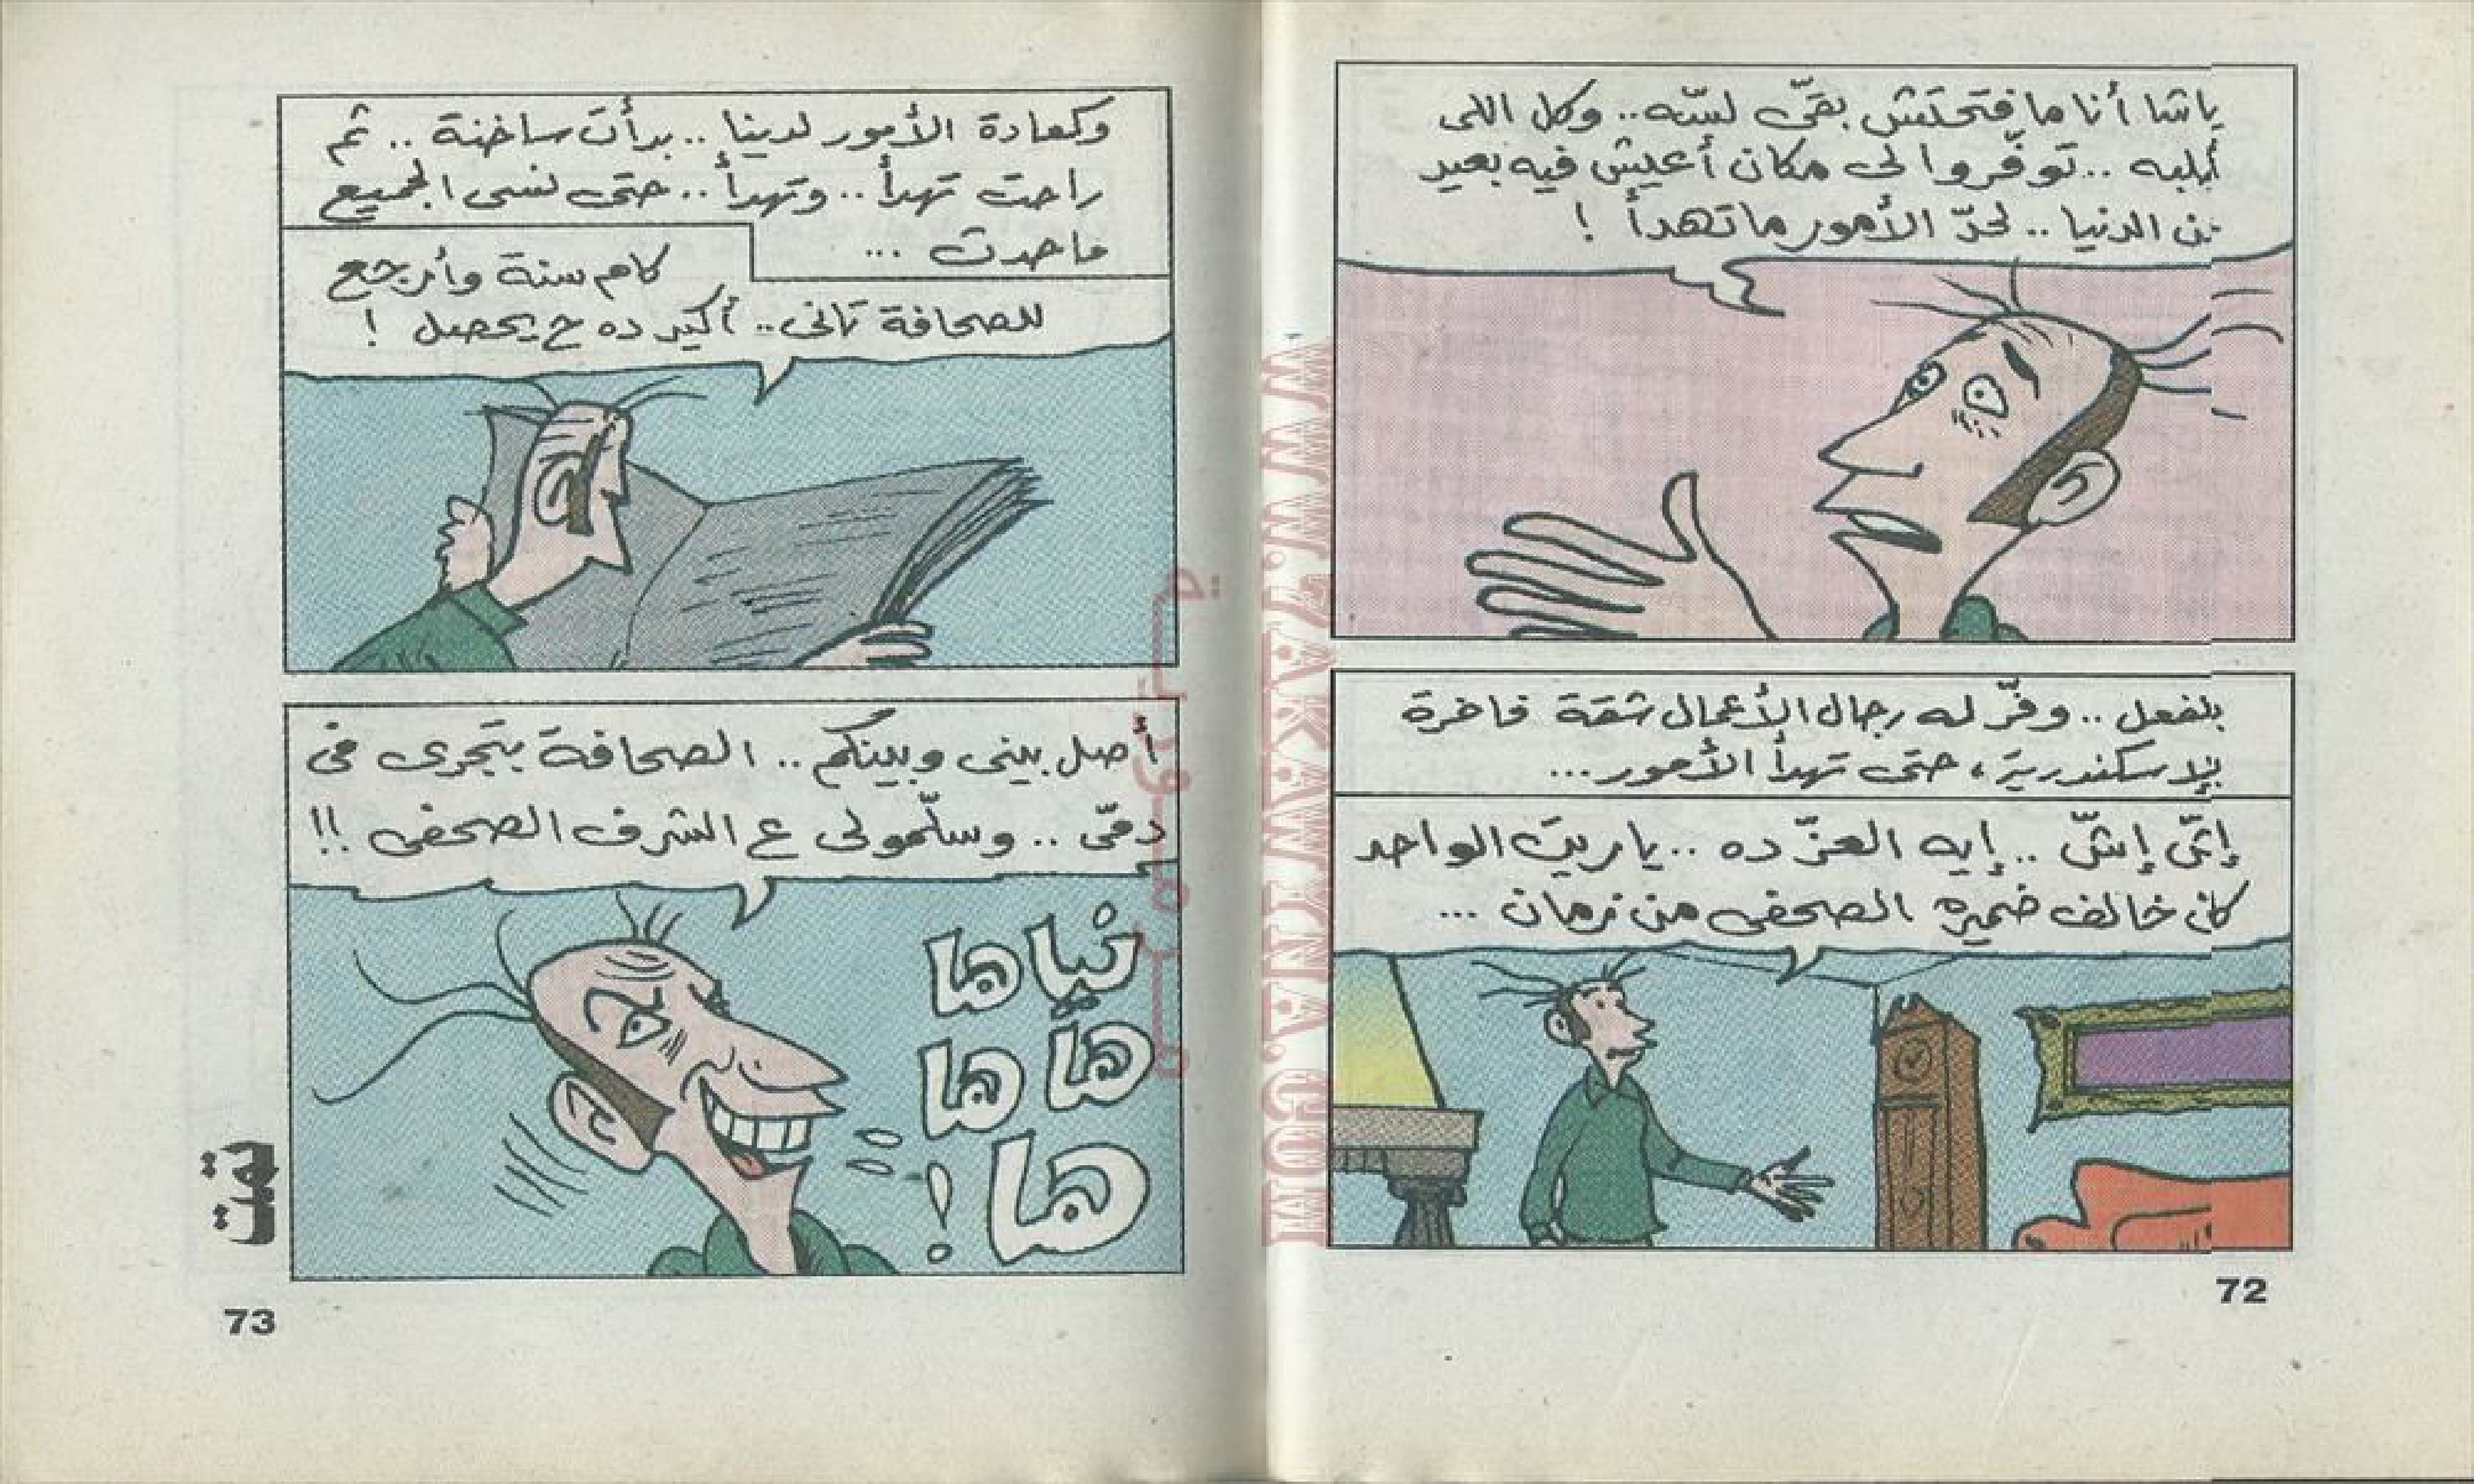 ياشا أنا ما فتحتش بقّى لسّه.. وكل اللى
أطلبه.. توفّروا لى مكان أعيش فيه بعيد
عن الدنيا.. لحدّ الأمور ما تهدأ !
بالفعل.. وفّر له رجال الأعمال شقة فاخرة
بالإسكندرية، حتى تهدأ الأمور...
إشّ إشّ.. إيه العزّ ده.. ياريت الواحد
كان خالف ضميره الصحفى من زمان...
72
وكعادة الأمور لدينا.. بدأت ساخنة.. ثم
راحت تهدأ.. وتهدأ.. حتى نسى الجميع
ما حدث...
كام سنة وأرجع
للصحافة تانى.. أكيد ده ح يحصل !
أصل بينى وبينكم.. الصحافة بتجرى فى
دمّى.. وسلّمولى ع الشرف الصحفى !!
نياها
ها ها
ها !
تمت
73
WWW.ZAKAWINA.COM